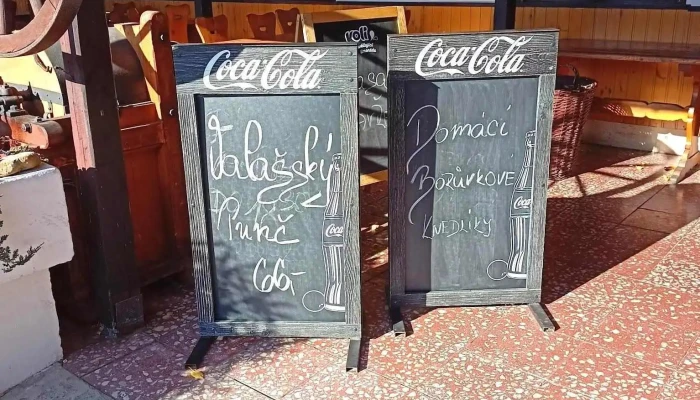 Coca-Cola
Valašský
Punč
66,-
Coca-Cola
Domácí
Borůvkové
Knedlíky
Voli